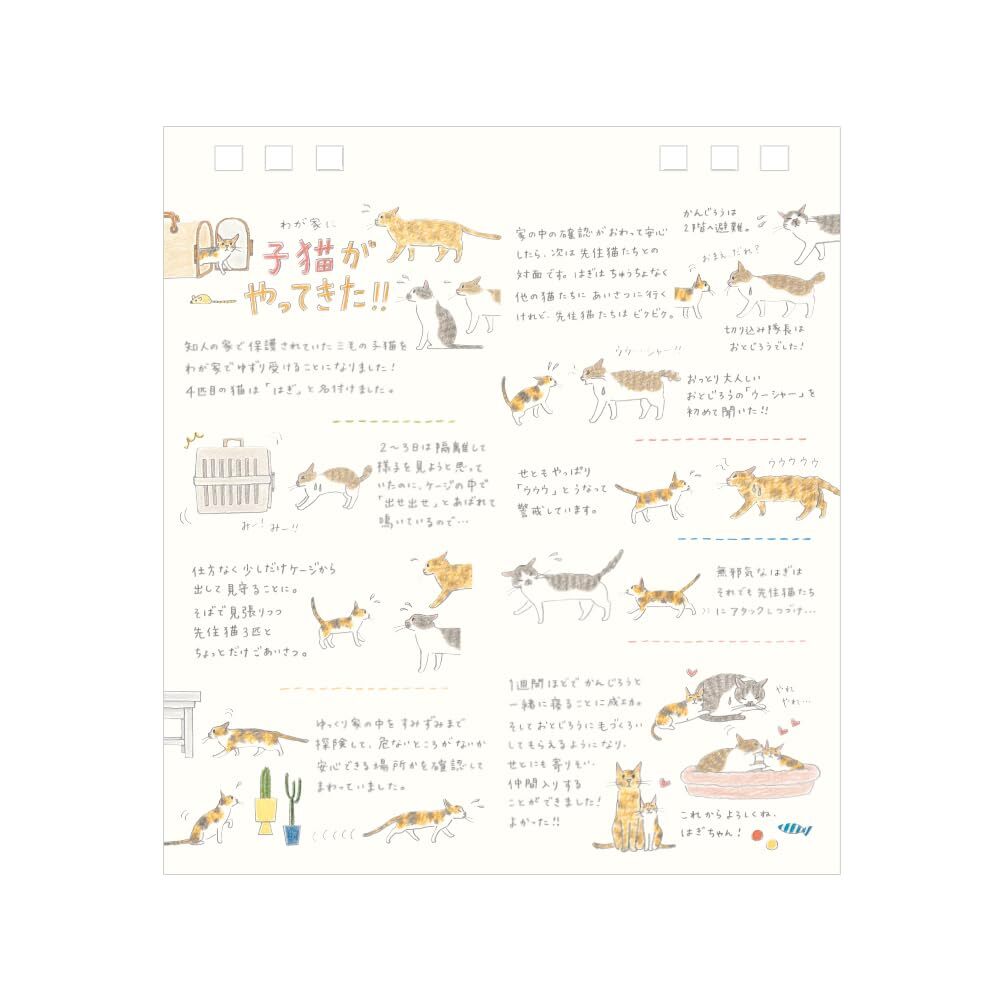 わが家に
子猫が
やってきた!!
知人の家で保護されていた三毛の子猫を
わが家でゆずり受けることになりました!
4匹目の猫は「はぎ」と名付けました。
2〜3日は隔離して
様子を見ようと思って
いたのに、ケージの中で
「出せ出せ」とあばれて
鳴いているので…
みー! みー!!
仕方なく少しだけケージから
出して見守ることに。
そばで見張りつつ
先住猫3匹と
ちょっとだけごあいさつ。
ゆっくり家の中をすみずみまで
探険して、危ないところがないか
安心できる場所かを確認して
まわっていました。
家の中の確認がおわって安心
したら、次は先住猫たちとの
対面です。はぎはちゅうちょなく
他の猫たちにあいさつに行く
けれど、先住猫たちはビクビク。
かんじろうは
2階へ避難。
おまえ、だれ?
切り込み隊長は
おとじろうでした!
ウウ…シャー!!
おっとり大人しい
おとじろうの「ウーシャー」を
初めて聞いた!!
せともやっぱり
「ウウウ」とうなって
警戒しています。
ウウウウウ
無邪気なはぎは
それでも先住猫たち
にアタックしつづけ…
1週間ほどでかんじろうと
一緒に寝ることに成功。
そしておとじろうにも毛づくろい
してもらえるようになり、
せとにも寄りそい、
仲間入りする
ことができました!
よかった!!
やれ
やれ…
これからよろしくね、
はぎちゃん!